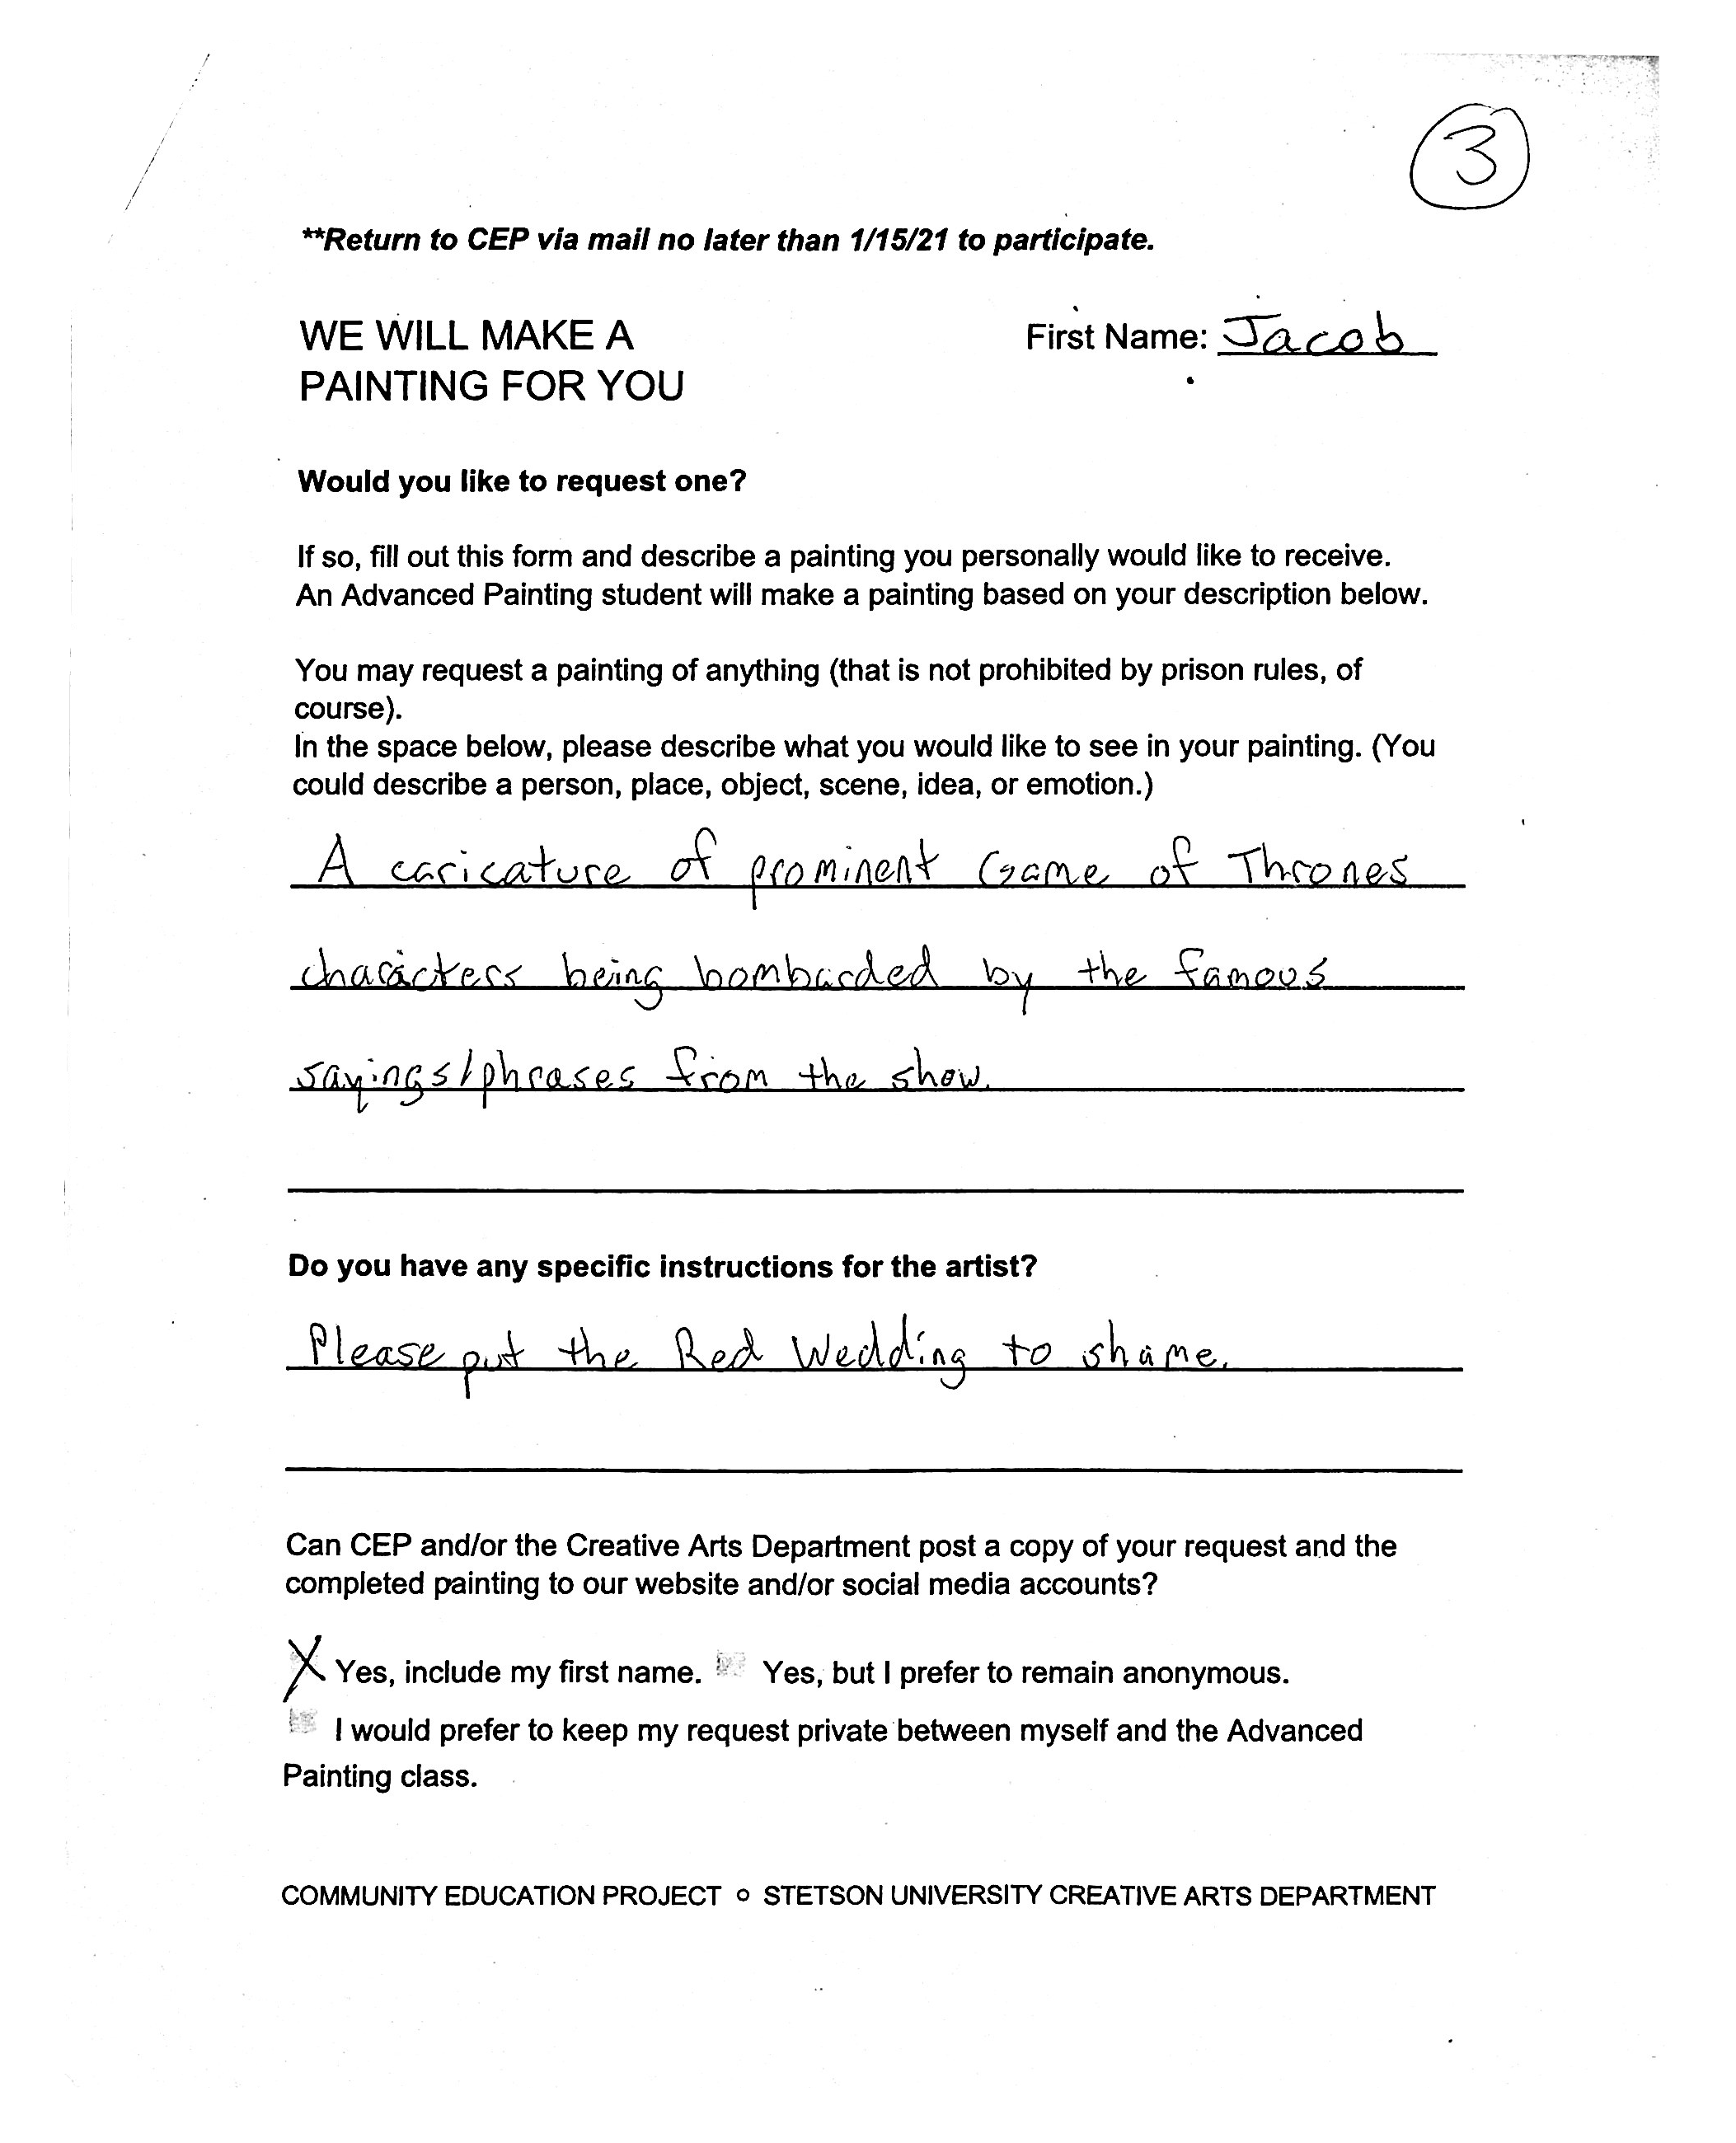 3
**Return to CEP via mail no later than 1/15/21 to participate.
WE WILL MAKE A
PAINTING FOR YOU
First Name: Jacob
Would you like to request one?
If so, fill out this form and describe a painting you personally would like to receive.
An Advanced Painting student will make a painting based on your description below.
You may request a painting of anything (that is not prohibited by prison rules, of
course).
In the space below, please describe what you would like to see in your painting. (You
could describe a person, place, object, scene, idea, or emotion.)
A caricature of prominent Game of Thrones
characters being bombarded by the famous
sayings/phrases from the show.
Do you have any specific instructions for the artist?
Please put the Red Wedding to shame.
Can CEP and/or the Creative Arts Department post a copy of your request and the
completed painting to our website and/or social media accounts?
X Yes, include my first name. Yes, but I prefer to remain anonymous.
I would prefer to keep my request private between myself and the Advanced
Painting class.
COMMUNITY EDUCATION PROJECT o STETSON UNIVERSITY CREATIVE ARTS DEPARTMENT